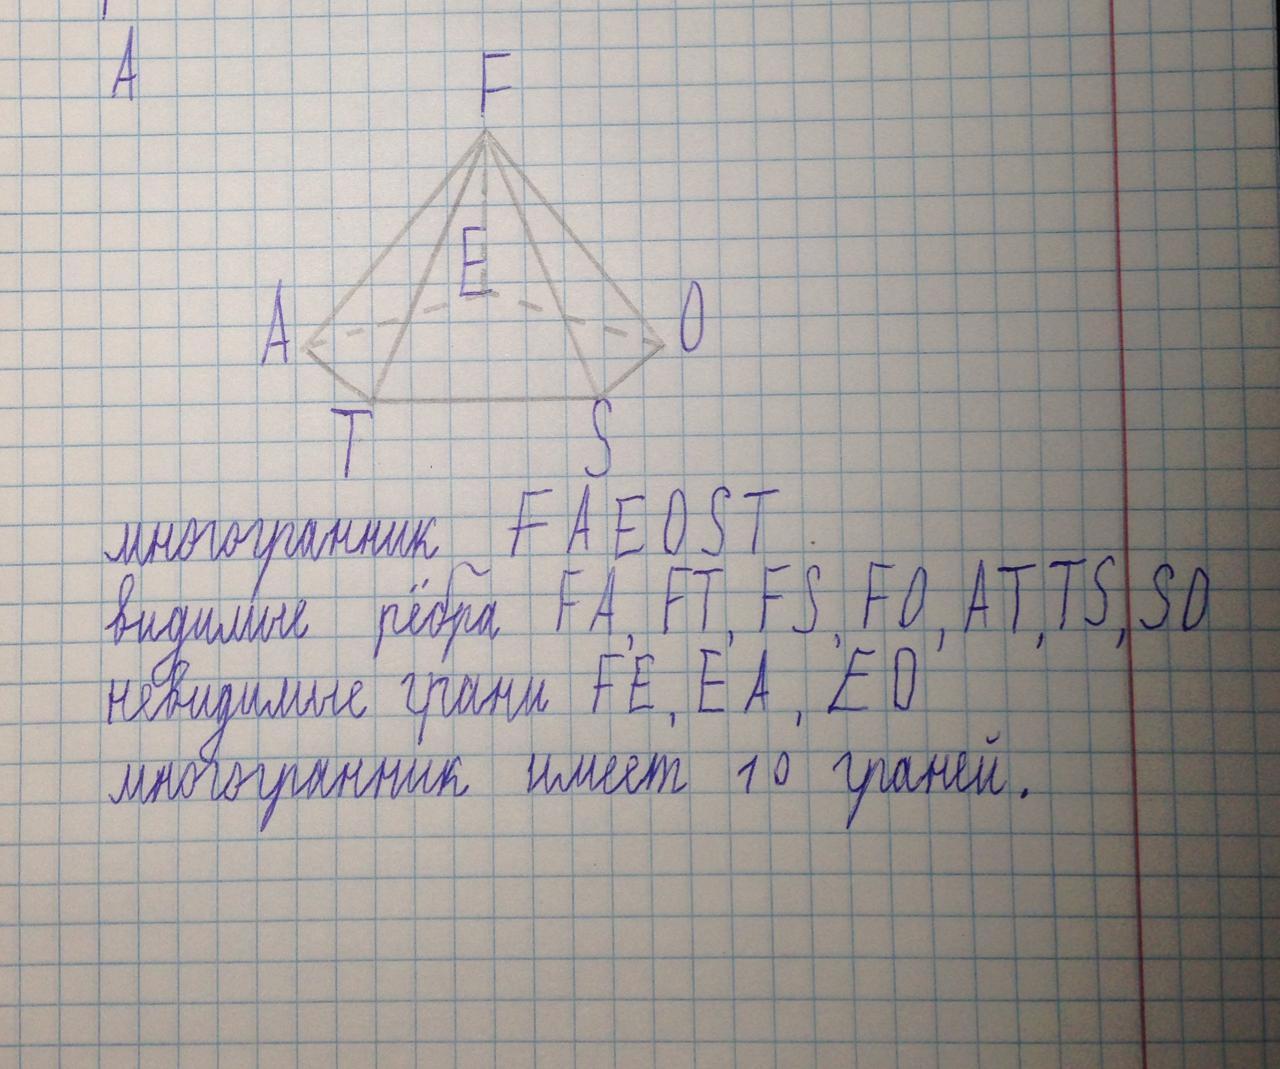 А
F
E
A
O
T
S
многогранник FAEOST
видимые рёбра FA, FT, FS, FO, AT, TS, SO
невидимые грани FE, EA, EO
многогранник имеет 10 граней.